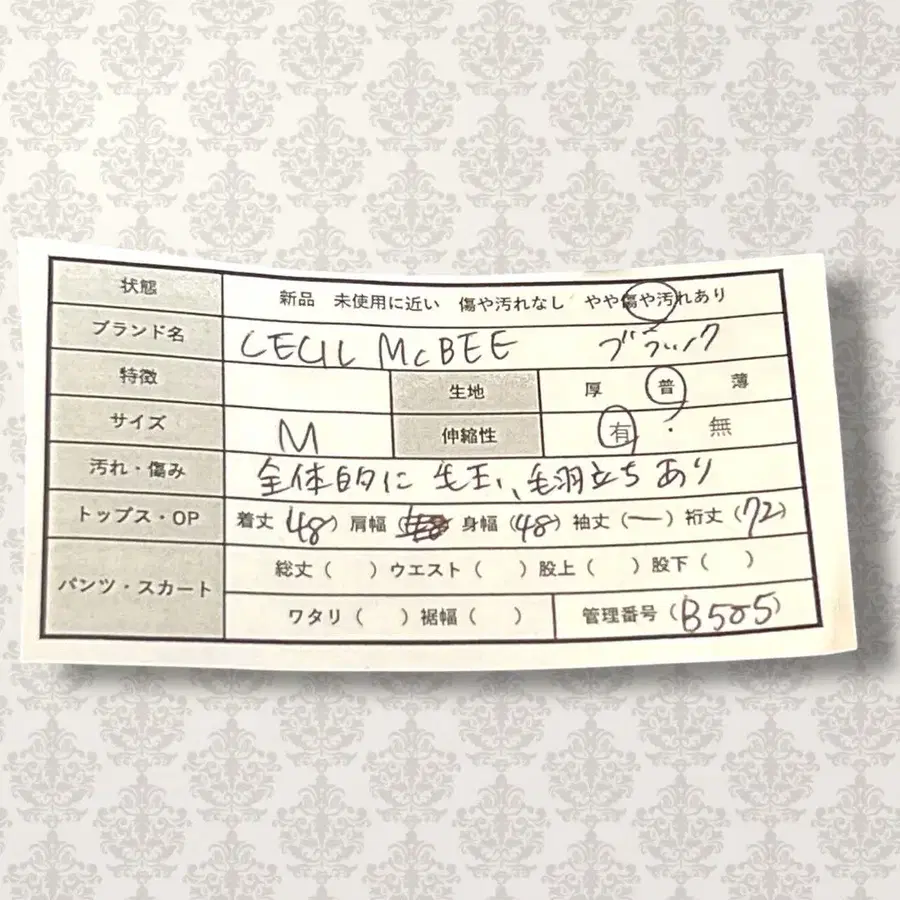 状態 新品 未使用に近い 傷や汚れなし やや傷や汚れあり
ブランド名 CECIL McBEE ブラック
特徴 生地 厚 普 薄
サイズ M 伸縮性 有・無
汚れ・傷み 全体的に毛玉、毛羽立ちあり
トップス・OP 着丈(48) 肩幅( 身幅(48) 袖丈(ー) 裄丈(72)
パンツ・スカート 総丈( )ウエスト( )股上( )股下( )
ワタリ( )裾幅( ) 管理番号(B505)